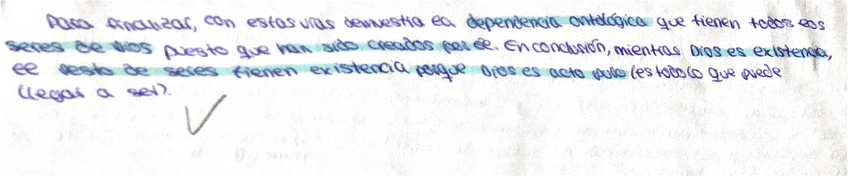 Para finalizar, con estas vías demuestra la dependencia ontológica que tienen todos los
seres de Dios puesto que han sido creados por él. En conclusión, mientras Dios es existencia,
el resto de seres tienen existencia porque Dios es acto puro (es todo lo que puede
llegar a ser).